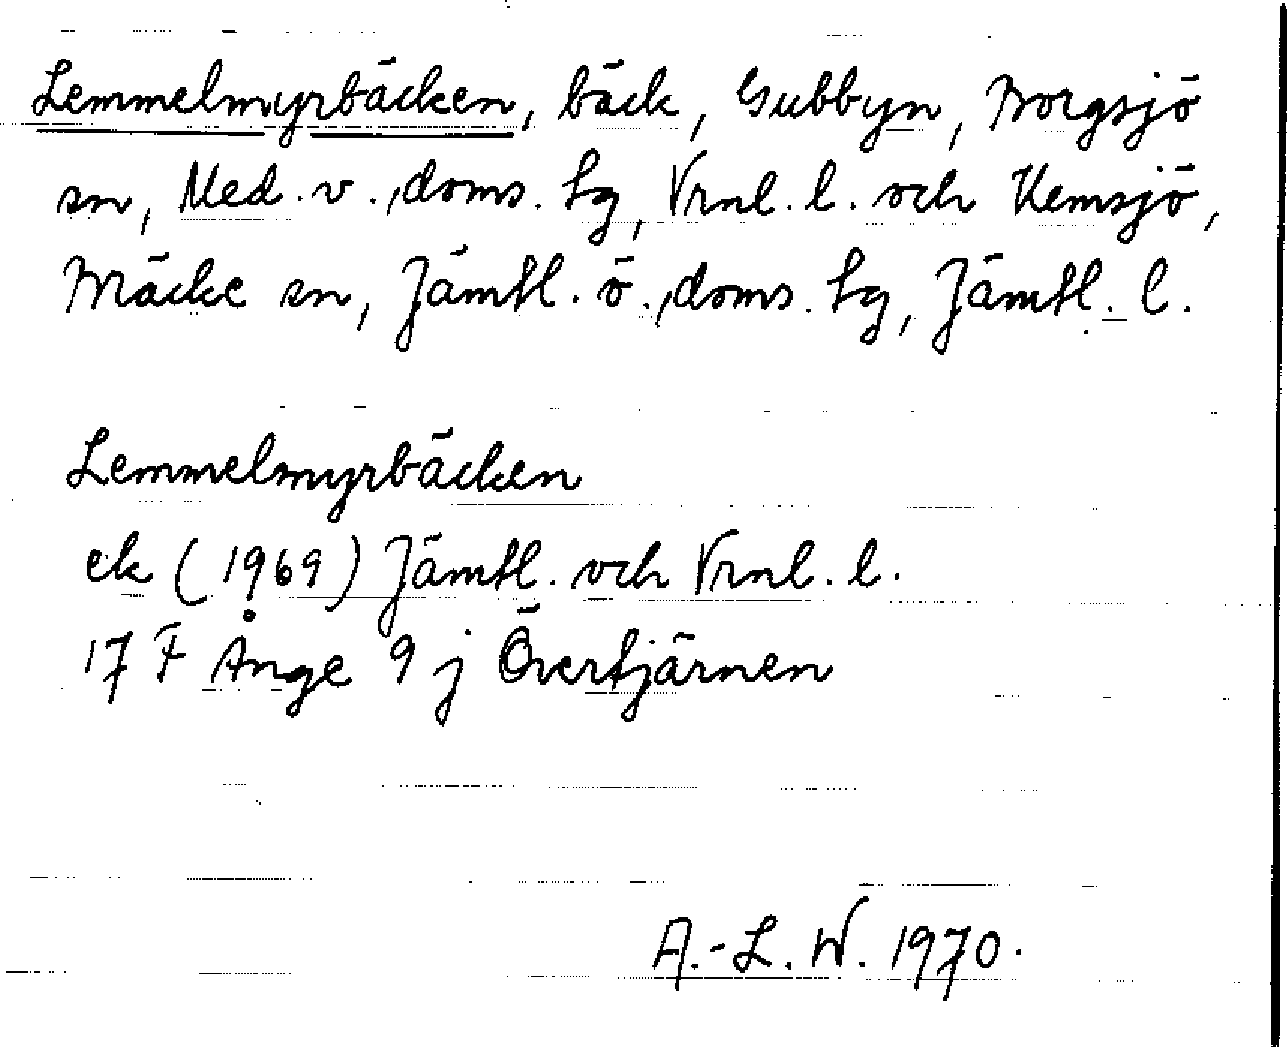 Lemmelmyrbäcken, bäck, Gubbyn, Borgsjö
sn, Med. v., doms. tg, Vrnl. l. och Hemsjö,
Bräcke sn, Jämtl. ö., doms. tg, Jämtl. l.
Lemmelmyrbäcken
ek (1969) Jämtl. och Vrnl. l.
17 F Ånge 9 j Övertjärnen
A.-L. W. 1970.